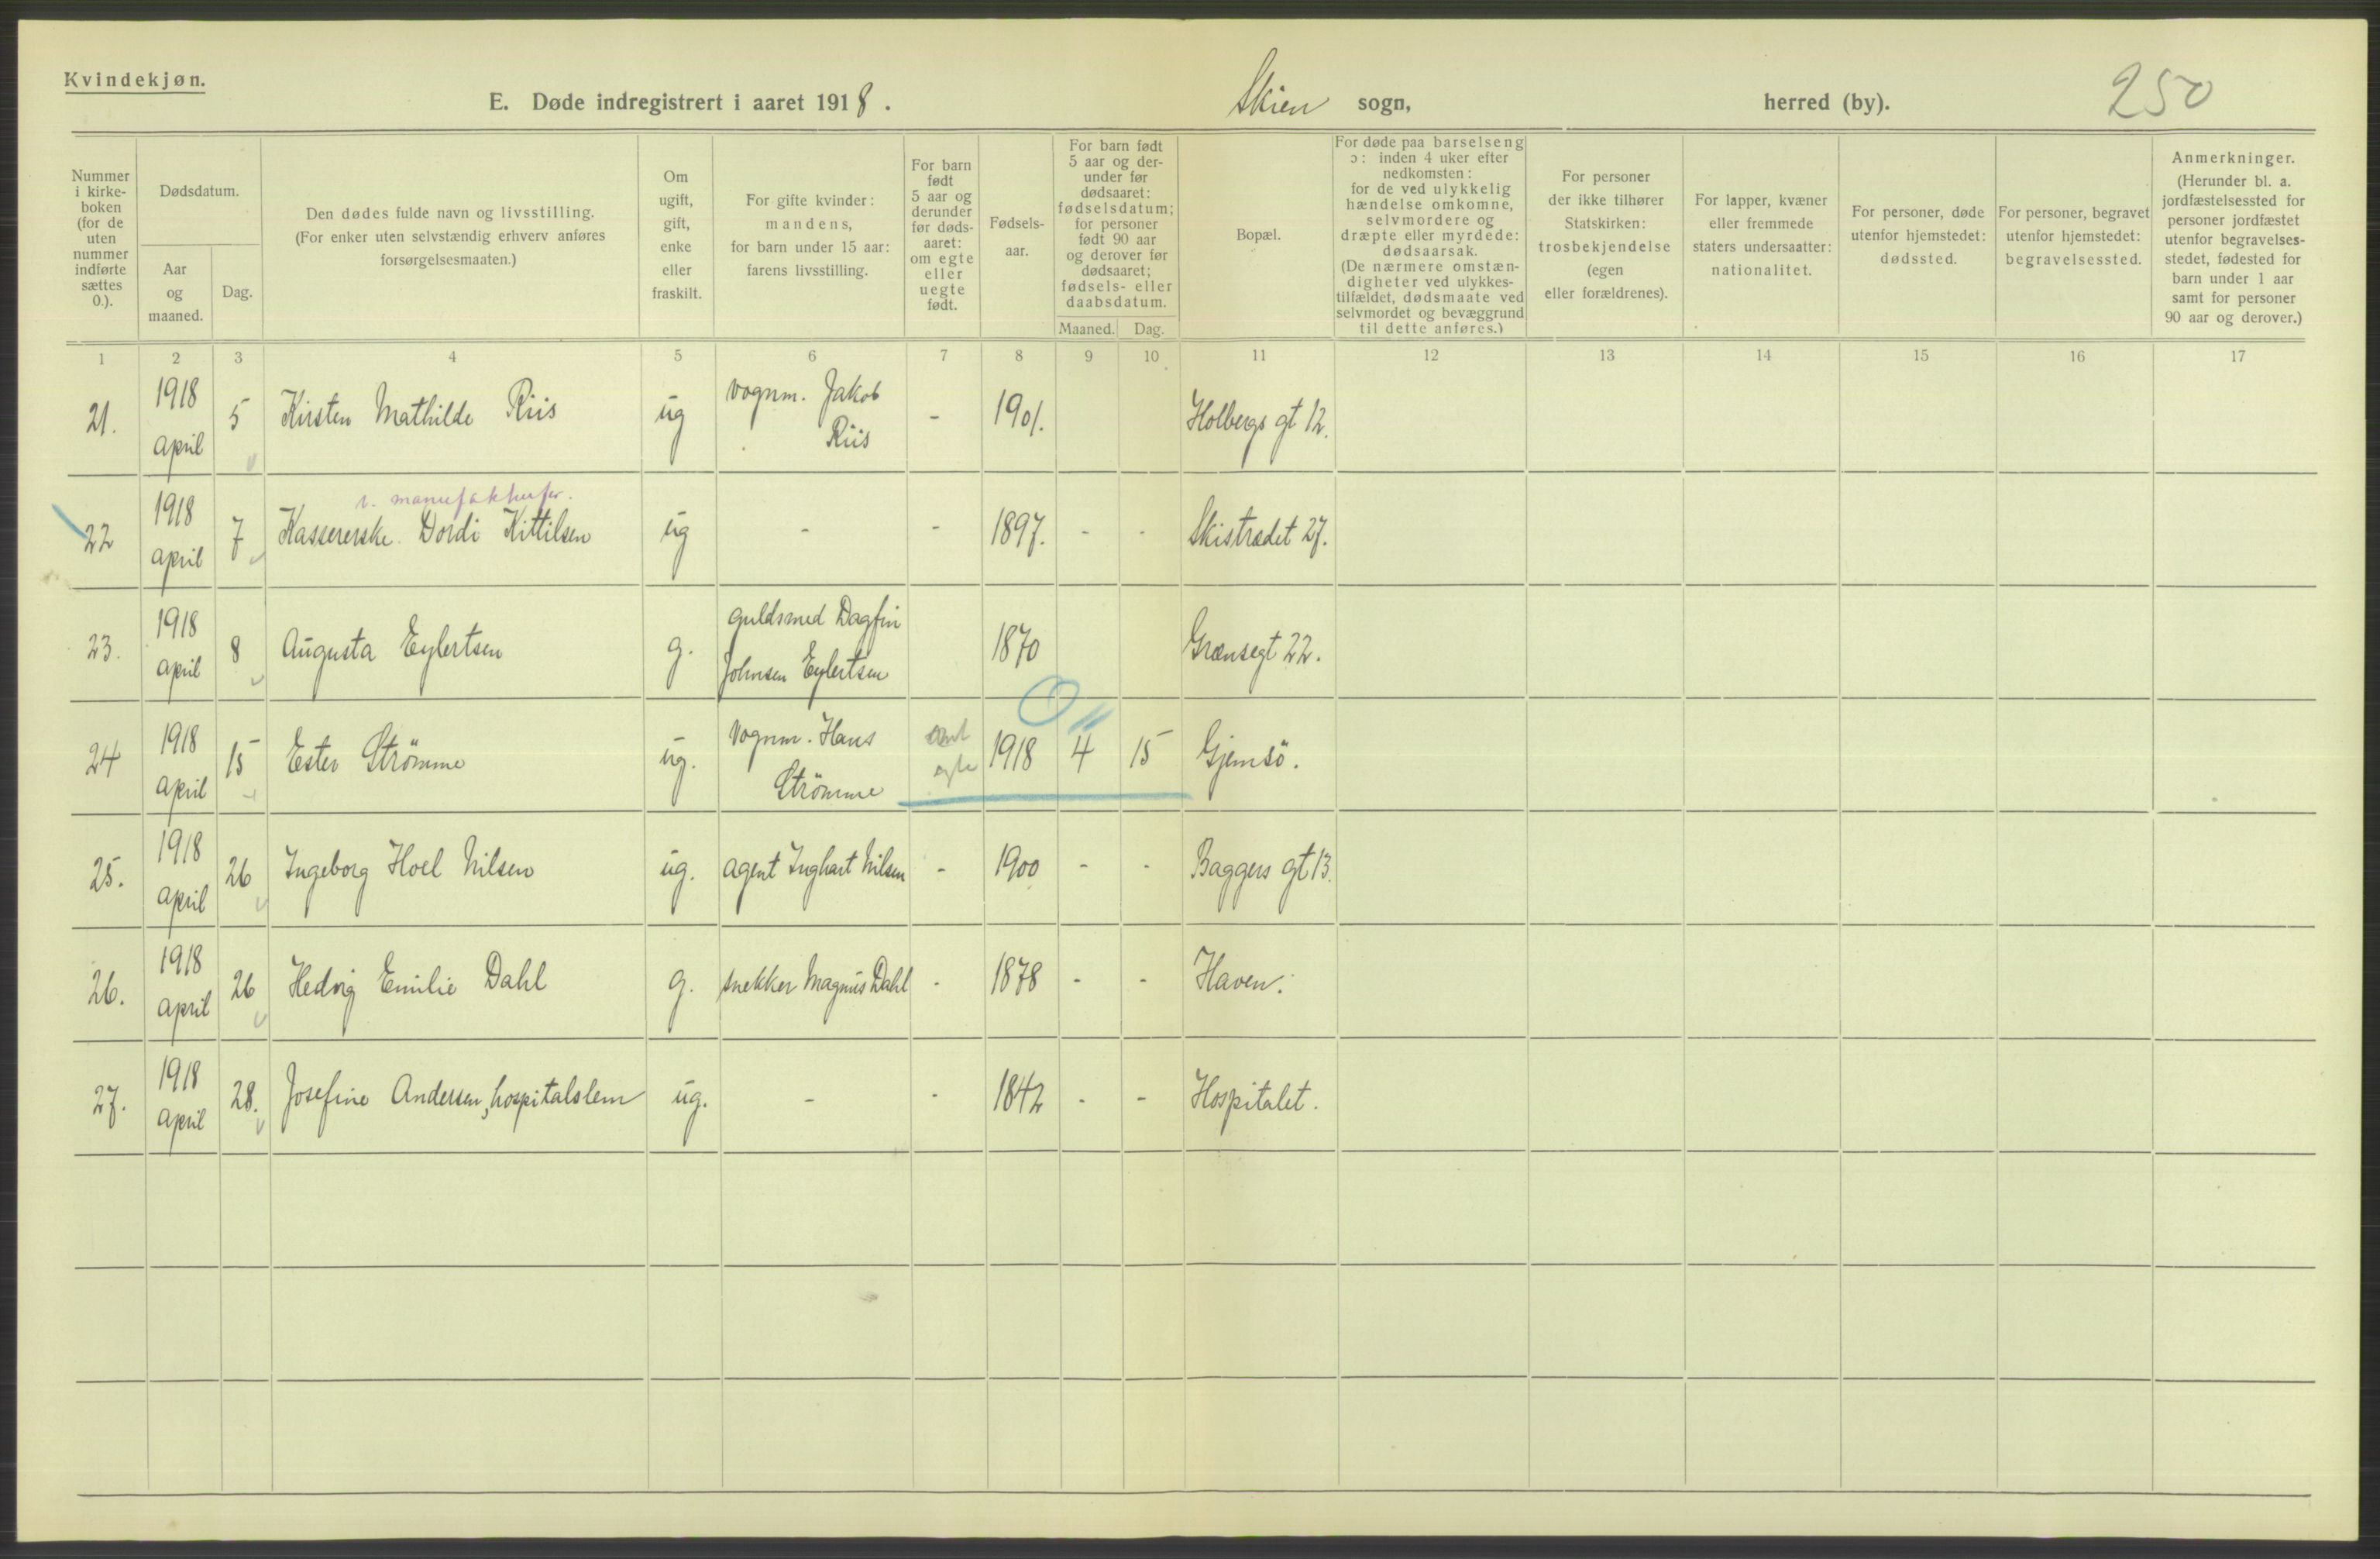 Kvindekjøn.
E. Døde indregistrert i aaret 1918. Skien sogn, herred (by). 250
Nummer i kirke-boken (for de uten nummer indførte sættes 0.).
Dødsdatum.
Aar og maaned.
Dag.
Den dødes fulde navn og livsstilling.
(For enker uten selvstændig erhverv anføres forsørgelsesmaaten.)
Om ugift, gift, enke eller fraskilt.
For gifte kvinder: mandens, for barn under 15 aar: farens livsstilling.
For barn født 5 aar og derunder før døds-aaret: om egte eller uegte født.
Fødsels-aar.
For barn født 5 aar og der-under før dødsaaret: fødselsdatum; for personer født 90 aar og derover før dødsaaret; fødsels- eller daabsdatum.
Maaned. Dag.
Bopæl.
For døde paa barselseng ɔ: inden 4 uker efter nedkomsten: for de ved ulykkelig hændelse omkomne, selvmordere og dræpte eller myrdede: dødsaarsak. (De nærmere omstæn-digheter ved ulykkes-tilfældet, dødsmaate ved selvmordet og bevæggrund til dette anføres.)
For personer der ikke tilhører Statskirken: trosbekjendelse (egen eller forældrenes).
For lapper, kvæner eller fremmede staters undersaatter: nationalitet.
For personer, døde utenfor hjemstedet: dødssted.
For personer, begravet utenfor hjemstedet: begravelsessted.
Anmerkninger. (Herunder bl. a. jordfæstelsessted for personer jordfæstet utenfor begravelses-stedet, fødested for barn under 1 aar samt for personer 90 aar og derover.)
1 2 3 4 5 6 7 8 9 10 11 12 13 14 15 16 17
21. 1918 april 5 Kirsten Mathilde Riis ug vognm. Jakob Riis - 1901. Holbergs gt 12.
i. manufakturfor.
22 1918 april 7 Kassererske Dordi Kittilsen ug - - 1897. - - Skistrædet 27.
23. 1918 april 8 Augusta Eylertsen g. guldsmed Dagfin Johnsen Eylertsen 1870 Grænsegt 22.
24 1918 april 15 Ester Strömme ug. vognm. Hans Strömme egte 1918 4 15 Gjemsö.
25. 1918 april 26 Ingeborg Hoel Nilsen ug. agent Inghart Nilsen - 1900 - - Baggers gt 13.
26. 1918 april 26 Hedvig Emilie Dahl g. snekker Magnus Dahl - 1878 - - Haven.
27. 1918 april 28. Josefine Andersen, hospitalslem ug. - - 1842 - - Hospitalet.